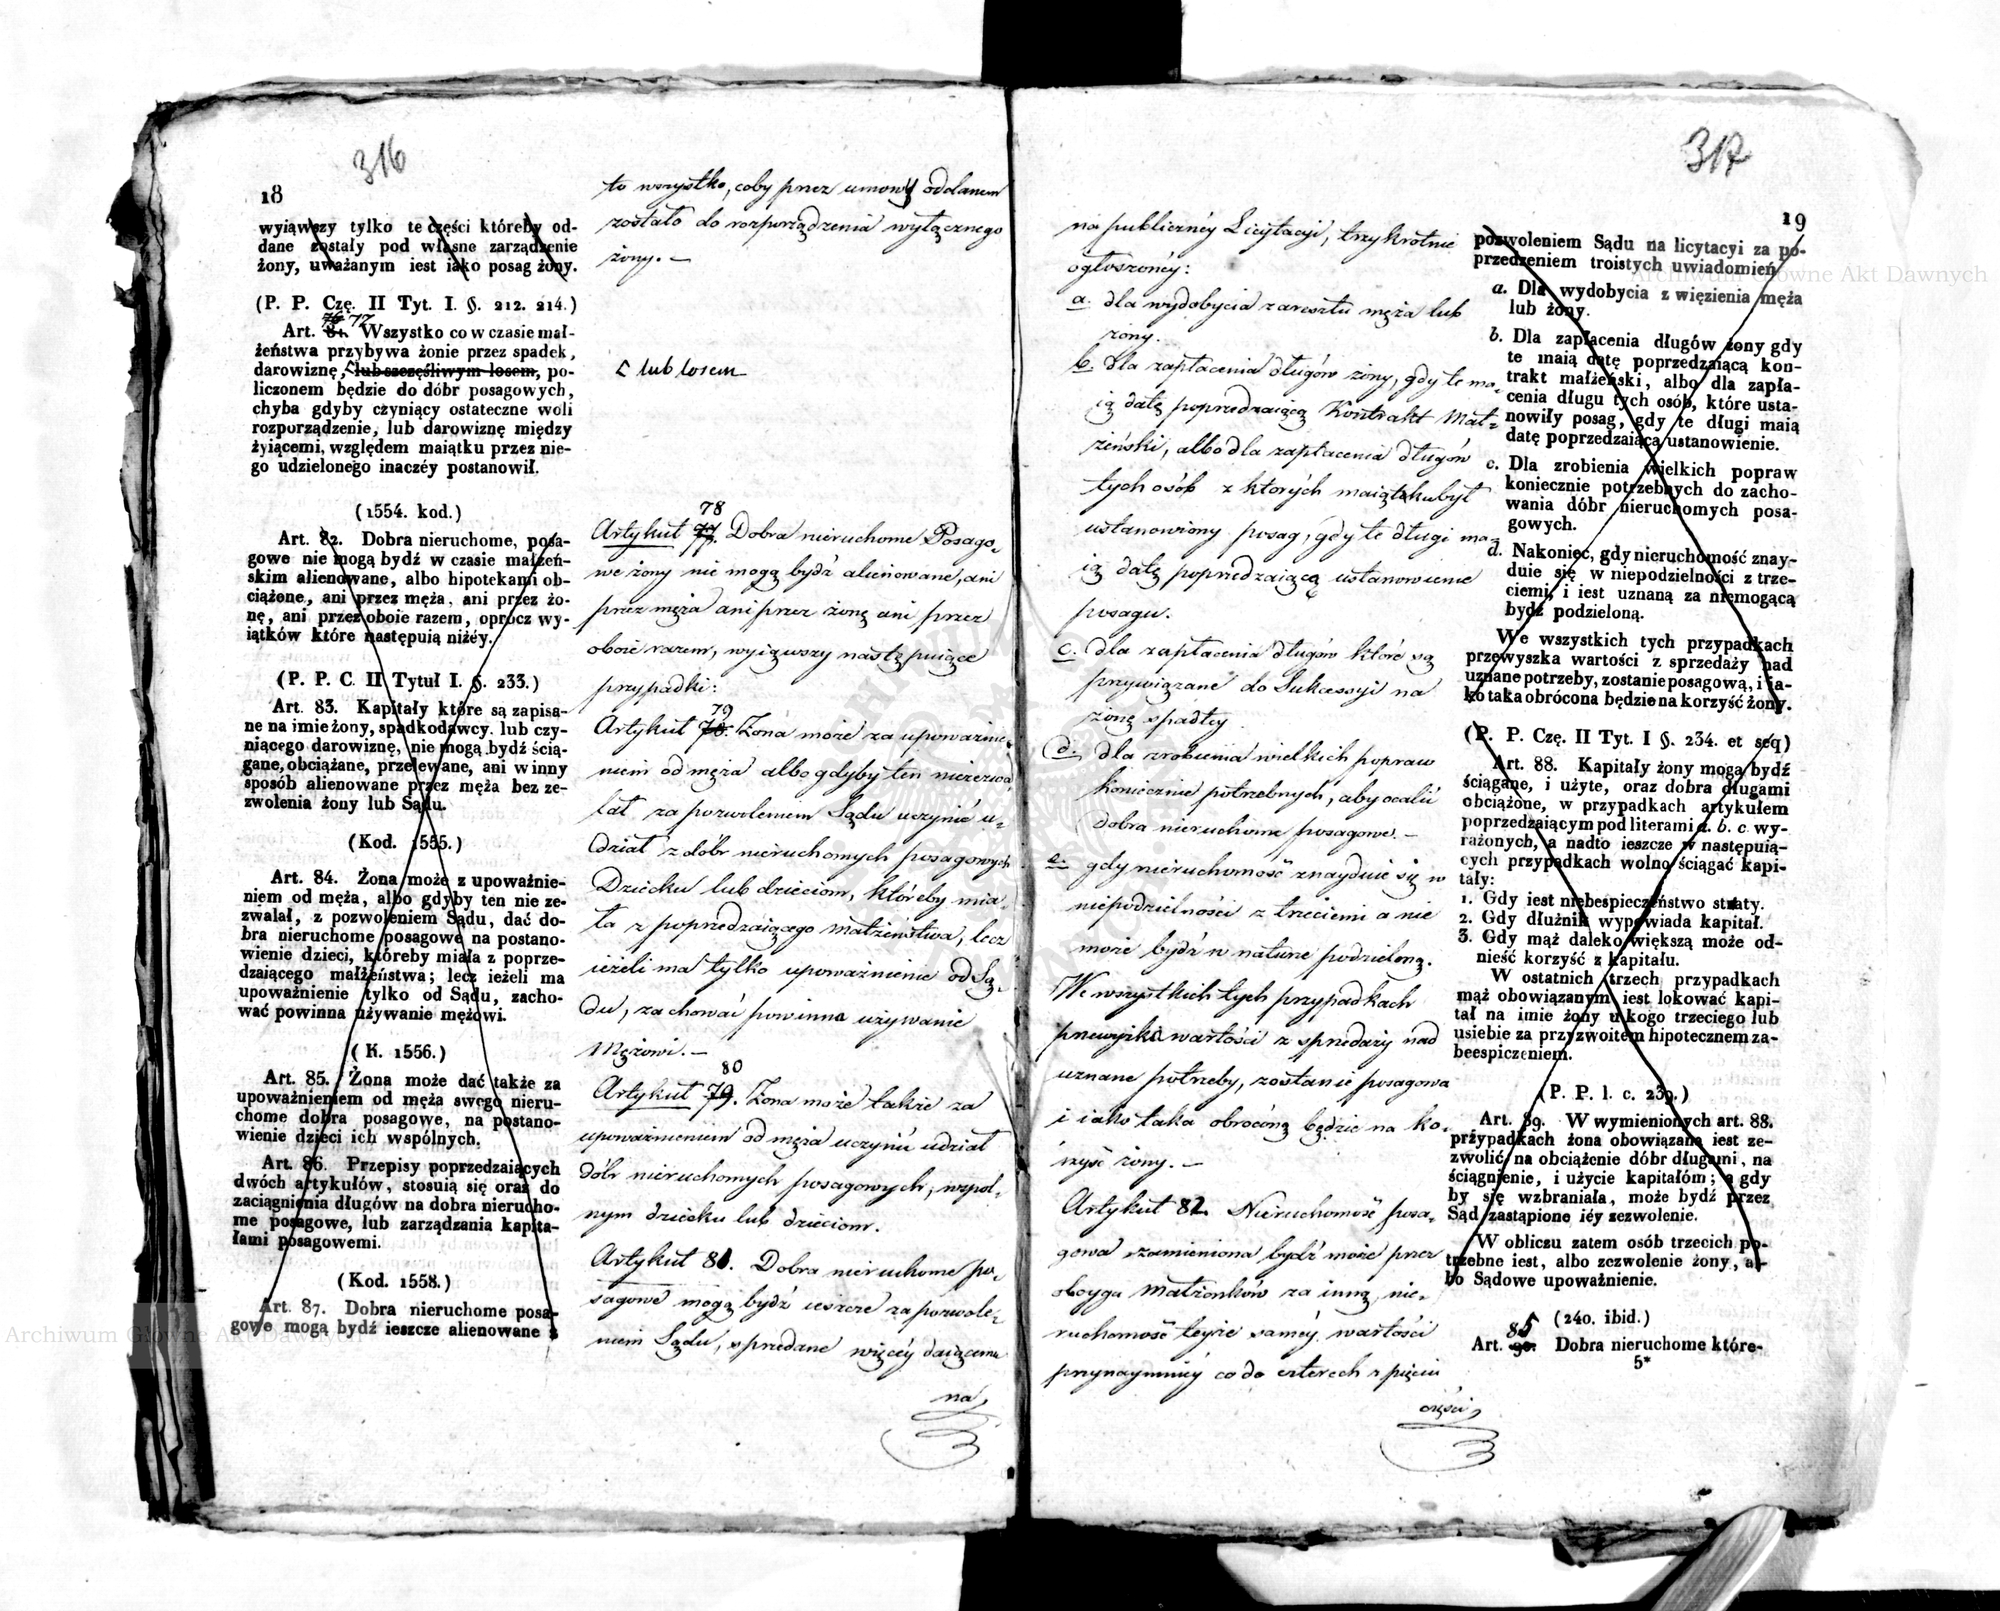 316
18
wyiąwszy tylko te części któreby od-
dane zostały pod własne zarządzenie
żony, uważanym iest iako posag żony.
(P. P. Czę. II Tyt. I. §. 212. 214.)
77
Art. 81. Wszystko co w czasie mał-
żeństwa przybywa żonie przez spadek,
darowiznę, lub szczęśliwym losem, po-
liczonem będzie do dóbr posagowych,
chyba gdyby czyniący ostateczne woli
rozporządzenie, lub darowiznę między
żyiącemi, względem maiątku przez nie-
go udzielonego inaczéy postanowił.
(1554. kod.)
Art. 82. Dobra nieruchome, posa-
gowe nie mogą bydź w czasie małżeń-
skim alienowane, albo hipotekami ob-
ciążone, ani przez męża, ani przez żo-
nę, ani przez oboie razem, oprócz wy-
iątków które następuią niżéy.
(P. P. C. II Tytuł I. §. 233.)
Art. 83. Kapitały które są zapisa-
ne na imie żony, spadkodawcy. lub czy-
niącego darowiznę, nie mogą bydź ścią-
gane, obciążane, przelewane, ani w inny
sposób alienowane przez męża bez ze-
zwolenia żony lub Sądu.
(Kod. 1555.)
Art. 84. Żona może z upoważnie-
niem od męża, albo gdyby ten nie ze-
zwalał, z pozwoleniem Sądu, dać do-
bra nieruchome posagowe na postano-
wienie dzieci, któreby miała z poprze-
dzaiącego małżeństwa; lecz ieżeli ma
upoważnienie tylko od Sądu, zacho-
wać powinna używanie mężowi.
( K. 1556.)
Art. 85. Żona może dać także za
upoważnieniem od męża swego nieru-
chome dobra posagowe, na postano-
wienie dzieci ich wspólnych.
Art. 86. Przepisy poprzedzaiących
dwóch artykułów, stosuią się oraz do
zaciągnienia długów na dobra nierucho-
me posagowe, lub zarządzania kapita-
łami posagowemi.
(Kod. 1558.)
Art. 87. Dobra nieruchome posa-
gowe mogą bydź ieszcze alienowane z
to wszystko, coby przez umowy oddanem
zostało do rozporządzenia wyłącznego
żony. –
lub losem
78
Artykuł 77. Dobra nieruchome Posago-
we żony nie mogą bydź alienowane, ani
przez męża ani przez żonę ani przez
oboie razem, wyiąwszy następuiące
przypadki:
79
Artykuł 78. Żona może za upoważnie-
niem od męża albo gdyby ten niezezwa-
lał za pozwoleniem Sądu uczynić u-
dział z dóbr nieruchomych posagowych
Dziecku lub dzieciom, któreby mia-
ła z poprzedzaiącego małżeństwa, lecz
ieżeli ma tylko upoważnienie od Są-
du, zachować powinna używanie
Mężowi. –
80
Artykuł 79. Żona może także za
upoważnieniem od męża uczynić udział
dóbr nieruchomych posagowych, wspól-
nym dziecku lub dzieciom.
Artykuł 81. Dobra nieruchome po-
sagowe mogą bydź ieszcze za pozwole-
niem Sądu, sprzedane więcéy daiącemu
na
317
19
na publicznéy Licytacyi, trzykrotnie
ogłoszonéy:
a. dla wydobycia z aresztu męża lub
żony.
b. dla zapłacenia długów żony, gdy te ma-
ią datę poprzedzaiącą Kontrakt Mał-
żeński, albo dla zapłacenia długów
tych osób z których maiątku był
ustanowiony posag, gdy te długi ma-
ią datę poprzedzaiącą ustanowienie
posagu.
c. dla zapłacenia długów które są
przywiązane do Sukcessyi na
żonę spadłey
d. dla zrobienia wielkich popraw
koniecznie potrzebnych, aby ocalić
dobra nieruchome posagowe. –
e. gdy nieruchomość znayduie się w
niepodzielności z trzeciemi a nie
może bydź w naturze podzieloną.
We wszystkich tych przypadkach
przewyżka wartości z sprzedaży nad
uznane potrzeby, zostanie posagowa
i iako taka obrócona będzie na ko-
rzyść żony. –
Artykuł 82. Nieruchomość posa-
gowa zamieniona bydź może przez
oboyga Małżonków za inną nie-
ruchomość teyże saméy wartości
przynaymniéy co do czterech z pięciu
części
pozwoleniem Sądu na licytacyi za po-
przedzeniem troistych uwiadomień
a. Dla wydobycia z więzienia męża
lub żony.
b. Dla zapłacenia długów żony gdy
te maią datę poprzedzaiącą kon-
trakt małżeński, albo dla zapła-
cenia długu tych osób, które usta-
nowiły posag, gdy te długi maią
datę poprzedzaiącą ustanowienie.
c. Dla zrobienia wielkich popraw
koniecznie potrzebnych do zacho-
wania dóbr nieruchomych posa-
gowych.
d. Nakoniec, gdy nieruchomość znay-
duie się w niepodzielności z trze-
ciemi, i iest uznaną za niemogącą
bydź podzieloną.
We wszystkich tych przypadkach
przewyszka wartości z sprzedaży nad
uznane potrzeby, zostanie posagową, i ia-
ko taka obrócona będzie na korzyść żony.
(P. P. Czę. II Tyt. I §. 234. et seq)
Art. 88. Kapitały żony mogą bydź
ściągane, i użyte, oraz dobra długami
obciążone, w przypadkach artykułem
poprzedzaiącym pod literami a. b. c. wy-
rażonych, a nadto ieszcze w następuią-
cych przypadkach wolno ściągać kapi-
tały:
1. Gdy iest niebespieczeństwo straty.
2. Gdy dłużnik wypowiada kapitał.
3. Gdy mąż daleko większą może od-
nieść korzyść z kapitału.
W ostatnich trzech przypadkach
mąż obowiązanym iest lokować kapi-
tał na imie żony u kogo trzeciego lub
usiebie za przyzwoitem hipotecznem za-
beespieczeniem.
(P. P. l. c. 239.)
Art. 89. W wymienionych art. 88.
przypadkach żona obowiązana iest ze-
zwolić na obciążenie dóbr długami, na
ściągnienie, i użycie kapitałóm; a gdy
by się wzbraniała, może bydź przez
Sąd zastąpione iéy zezwolenie.
W obliczu zatem osób trzecich po-
trzebne iest, albo zezwolenie żony, al-
bo Sądowe upoważnienie.
(240. ibid.)
85
Art. 90. Dobra nieruchome które-
5*
Archiwum Główne Akt Dawnych
Archiwum Główne Akt Dawnych